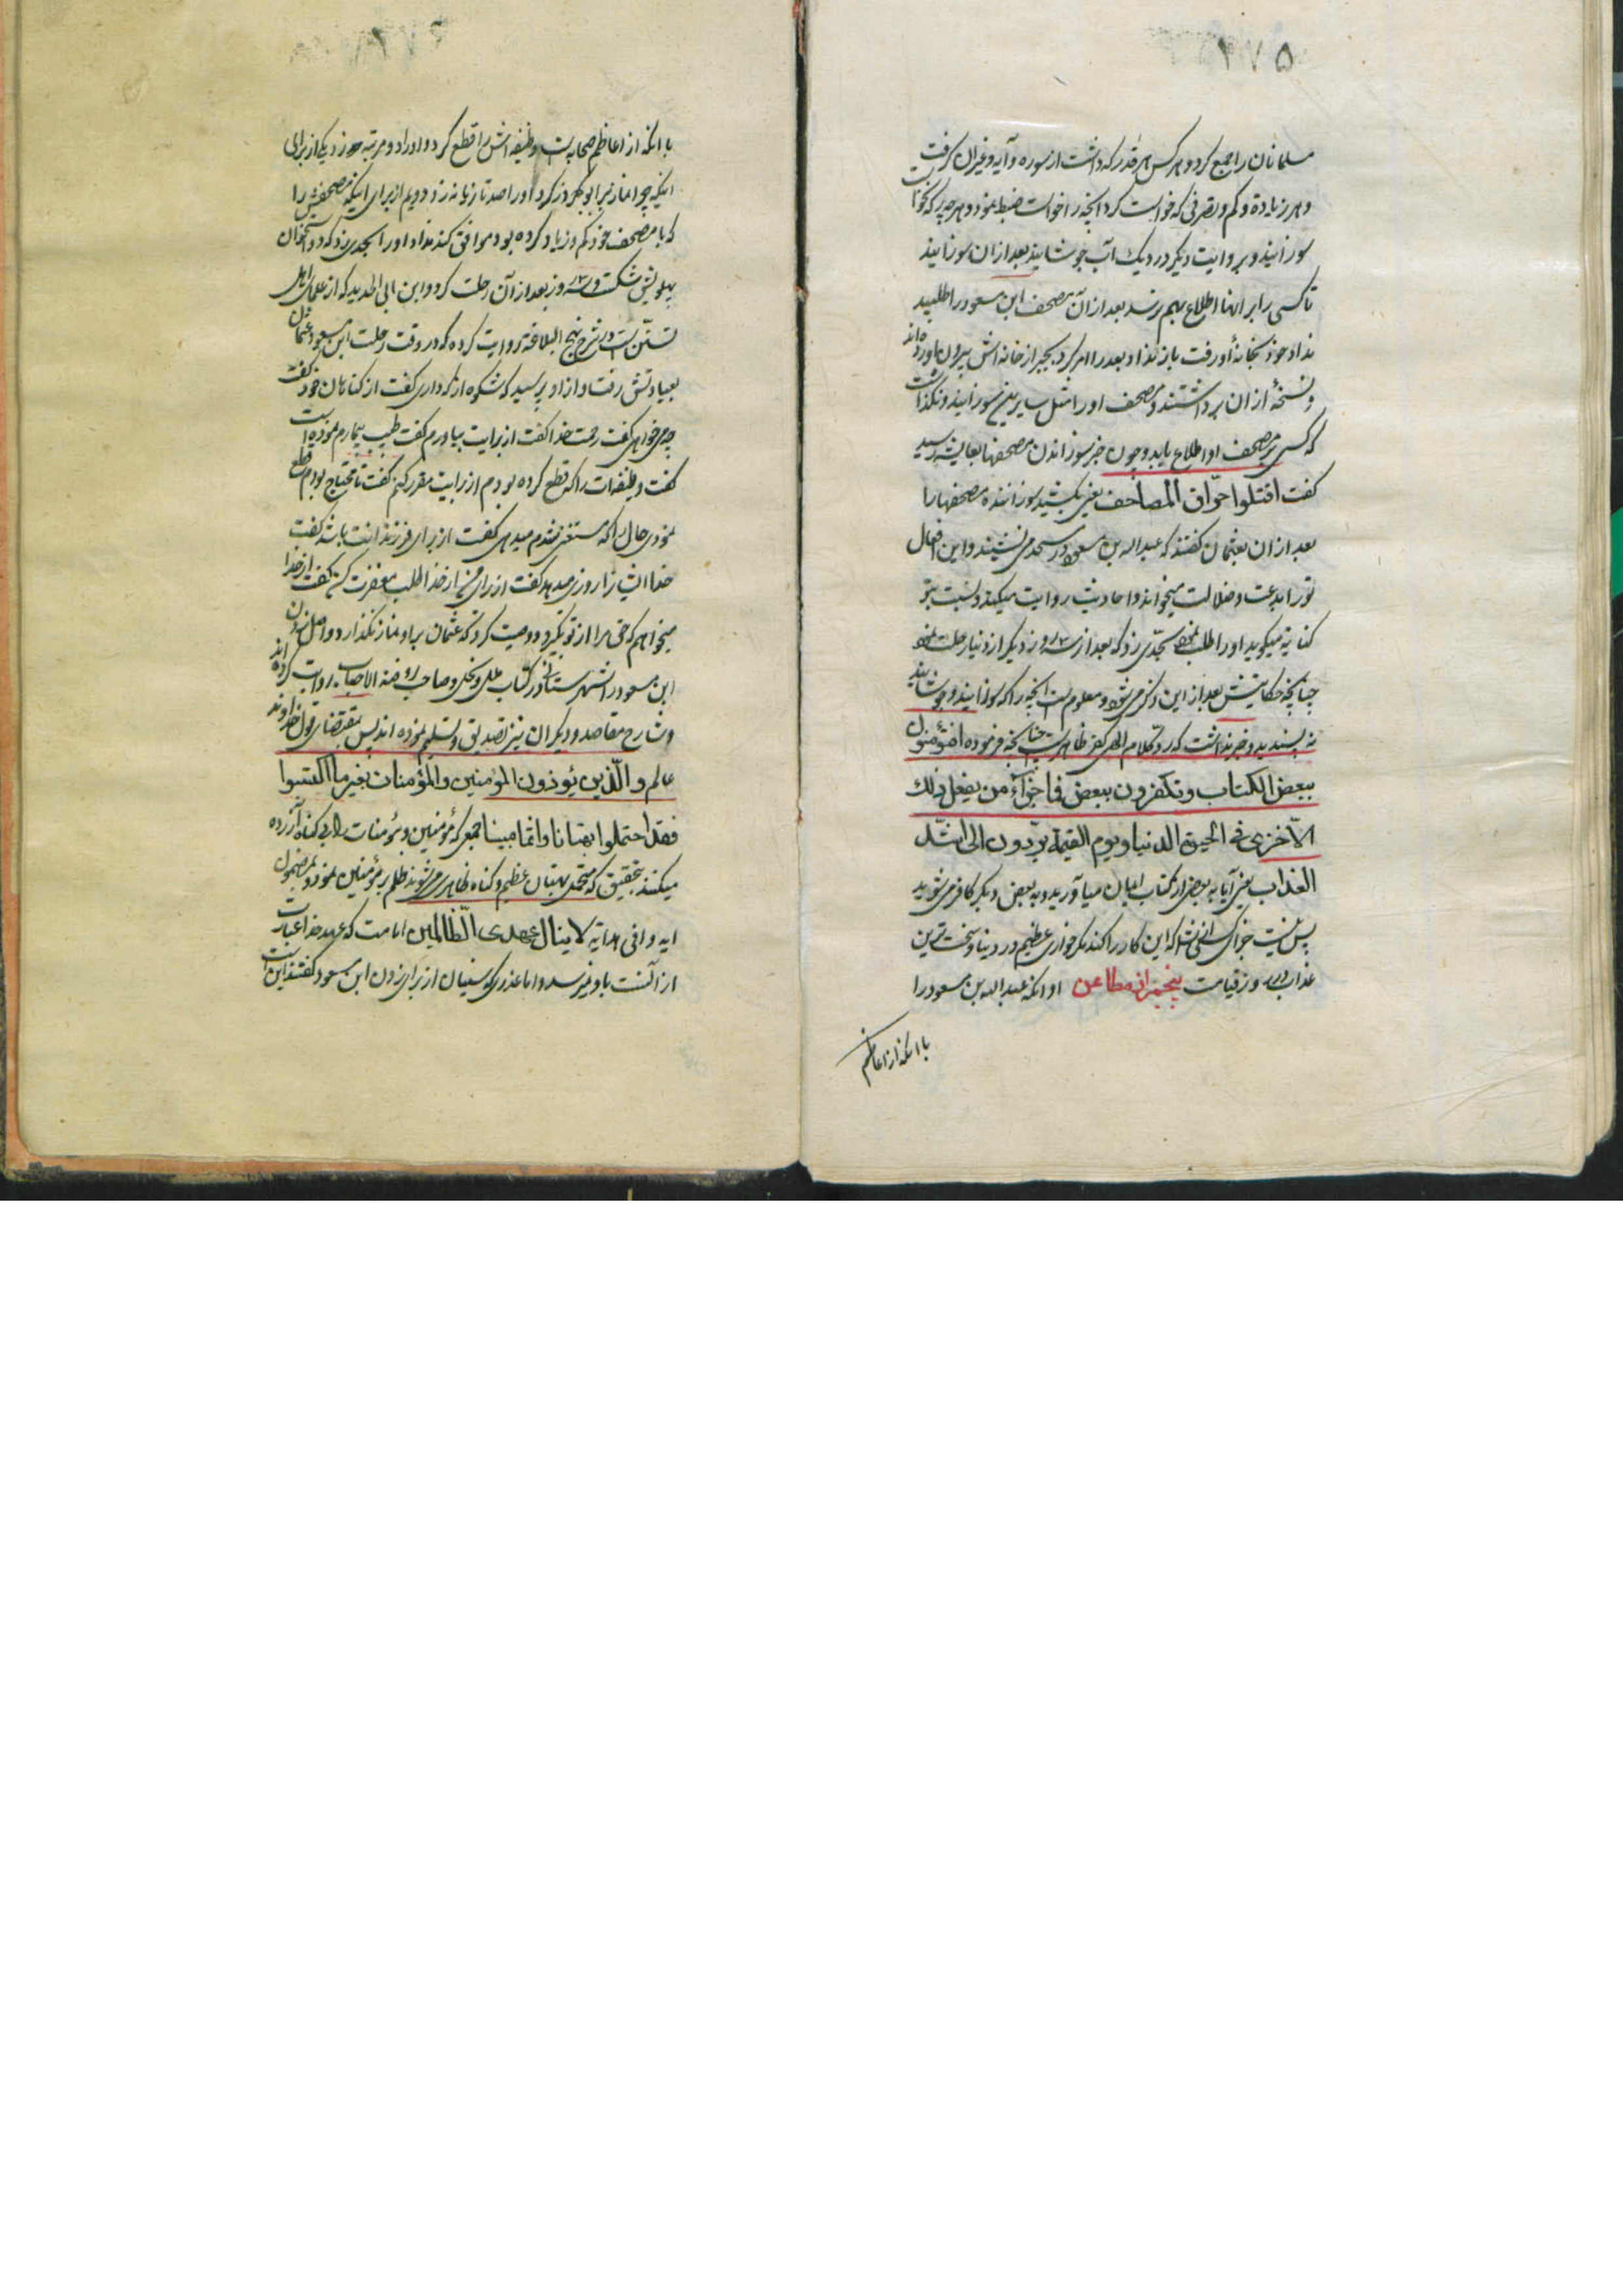 مسلمانان را جمع کرد و هر کس هر قدر که داشت از سوره و آیه و غیر آن گرفت
و هر زیاده و کم و تصرفی که خواست کرد آنچه را خواست ضبط نمود و هر چه را که نخواست
سوزانید و بروایت دیگر در دیک آب جوشانید بعد از ان سوزانید
تا کسی را بر انها اطلاع بهم نرسد بعد از آن مصحف ابن مسعود را طلبید
نداد خود بخانهٔ او رفت باز نداد بعد را امر کرد بجبر از خانه‌اش بیرون آوردند
و نسخهٔ از ان برداشتند و مصحف او را مثل سایرین سوزانید و نگذاشت
که کسی بر مصحف او اطلاع یابد و چون خبر سوزاندن مصحفها بعایشه رسید
گفت اقتلوا حرّاق المصاحف یعنی بکشید سوزاننده مصحفها را
بعد از ان بعثمان گفتند که عبد الله بن مسعود در مسجد می نشیند و این افعال
تو را بدعت و ضلالت میخواند و احادیث روایت میکند و نسبت بتو
کنایه میگوید او را طلب نموده بحدّی زد که بعد از سه روز دیگر از دنیا رحلت نمود
چنانچه حکایتش بعد از این ذکر می شود و معلوم است آنچه را که سوزانید و جوشانید
نه پسندید و خبر نداشت که رد کلام الهی کفر ظاهریست چنانچه فرموده افتؤمنون
ببعض الکتاب وتکفرون ببعض فما جزآء من یفعل ذلك
الّا خزی فی الحیوة الدنیا ویوم القیمة یردّون الی اشدّ
العذاب یعنی آیا به بعضی از کتاب ایمان میآورید و به بعض دیگر کافر می شوید
پس نیست جزای کسانی شما که این کار را کند مگر خواری عظیم در دنیا و سخت ترین
عذاب در روز قیامت پنجم از مطاعن او انکه عبد الله بن مسعود را
با انکه از اعاظم
با انکه از اعاظم صحابه است وظیفه اش را قطع کرد و او را دو مرتبه زد یکی از برای
اینکه چرا نماز بر ابوذر کرد او را صد تازیانه زد و دویم از برای اینکه مصحفش را
که با مصحف خود کم و زیاد کرده بود موافق کند نداد او را بحدی زد که دو استخوان
پهلویش شکست و سه روز بعد از آن رحلت کرد و ابن ابی الحدید که از علمای اهل
تسنّن است در شرح نهج البلاغة روایت کرده که در وقت رحلت ابن مسعود عثمان
بعیادتش رفت و از او پرسید که شکوه از که داری گفت از گناهان خود گفت
چه می خواهی گفت رحمت خدا گفت از برایت طبیب بیاورم گفت طبیب بیمارم نموده است
گفت وظیفه ات را که قطع کرده بودم از برایت مقرر کنم گفت تا محتاج بودم قطع
نمودی حال که مستغنی شدم میدهی گفت از برای فرزندانت باشد گفت
خدا ایشان را روزی میدهد گفت از برای من از خدا طلب مغفرت کن گفت از خدا
میخواهم که حق مرا از تو بگیرد و وصیت کرد که عثمان بر او نماز نگذارد و اصل زدن
ابن مسعود را شهرستانی در کتاب ملل و نحل و صاحب روضة الاحباب روایت کرده اند
و شارح مقاصد و دیگران نیز تصدیق و تسلیم نموده اند پس بمقتضای قول خداوند
عالم و الّذین یؤذون المؤمنین والمؤمنات بغیر ما اکتسبوا
فقد احتملوا بهتانا واثما مبینا جمعی که مؤمنین و مؤمنات را بی گناه آزرده
میکنند بتحقیق که متحمل بهتان عظیم و گناه ظاهری می شوند ظلم بر مؤمنین نمود و بمضمون
ایه وافی هدایه لاینال عهدی الظّالمین امامت که عهد خدا عبارت
از آنست باو نمیرسد و اما عذری که سنیان از برای زدن ابن مسعود گفتند این است